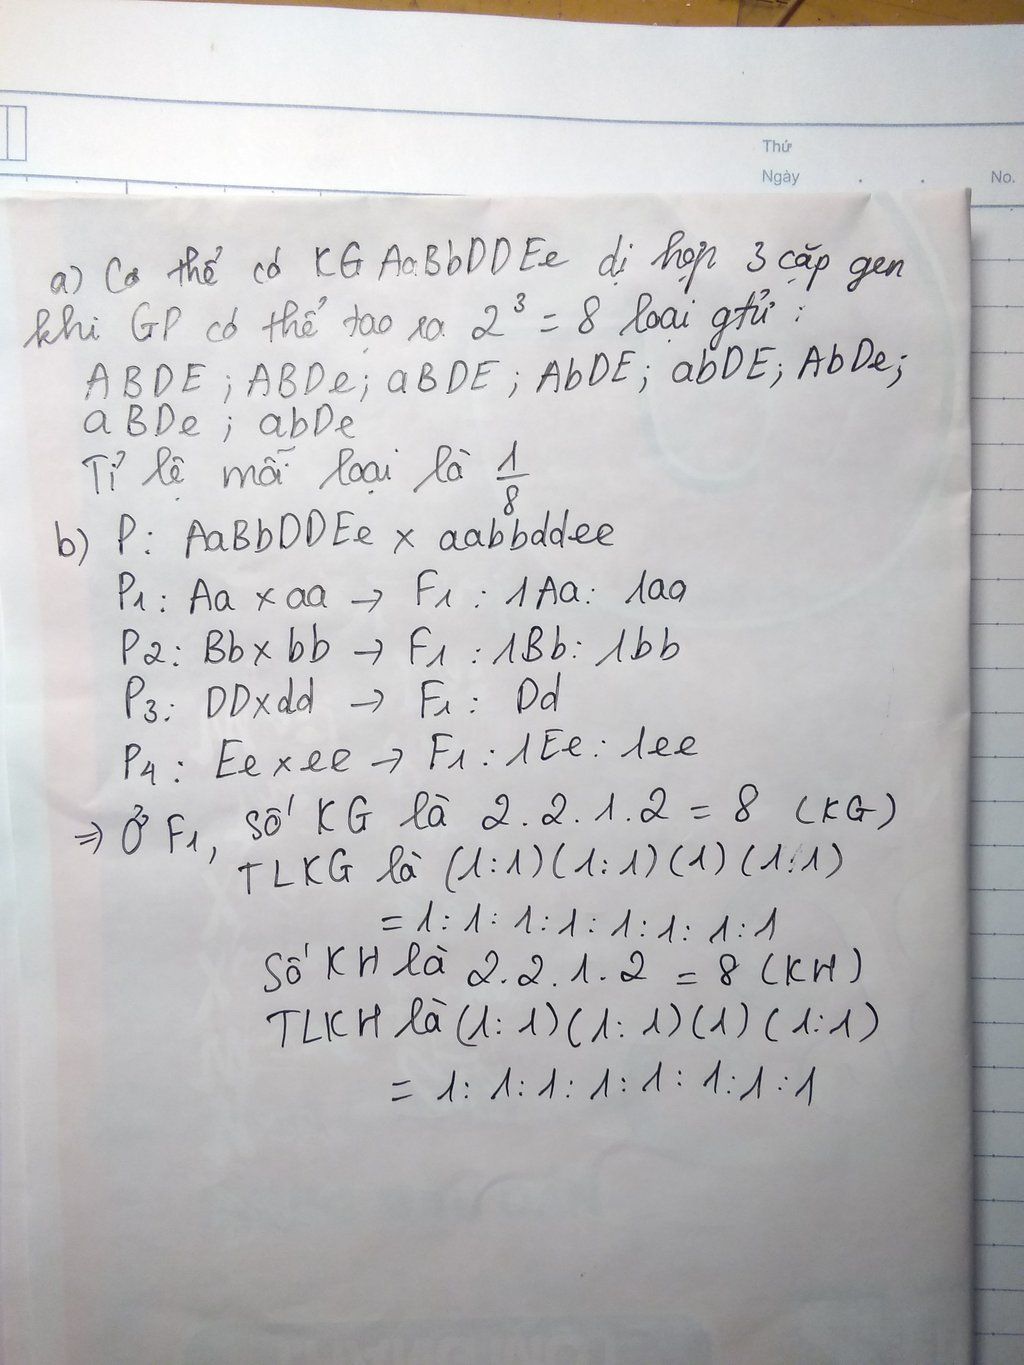 Thứ
Ngày . . No.
a) Cơ thể có KG AaBbDDEe dị hợp 3 cặp gen
khi GP có thể tạo ra 2³ = 8 loại gtử :
ABDE ; ABDe ; aBDE ; AbDE ; abDE ; AbDe ;
aBDe ; abDe
Tỉ lệ mỗi loại là 1/8
b) P : AaBbDDEe x aabbddee
P1 : Aa x aa → F1 : 1Aa : 1aa
P2 : Bb x bb → F1 : 1Bb : 1bb
P3 : DD x dd → F1 : Dd
P4 : Ee x ee → F1 : 1Ee : 1ee
⇒ Ở F1, số KG là 2.2.1.2 = 8 (KG)
TLKG là (1:1)(1:1)(1)(1:1)
= 1:1:1:1:1:1:1:1
Số KH là 2.2.1.2 = 8 (KH)
TLKH là (1:1)(1:1)(1)(1:1)
= 1:1:1:1:1:1:1:1